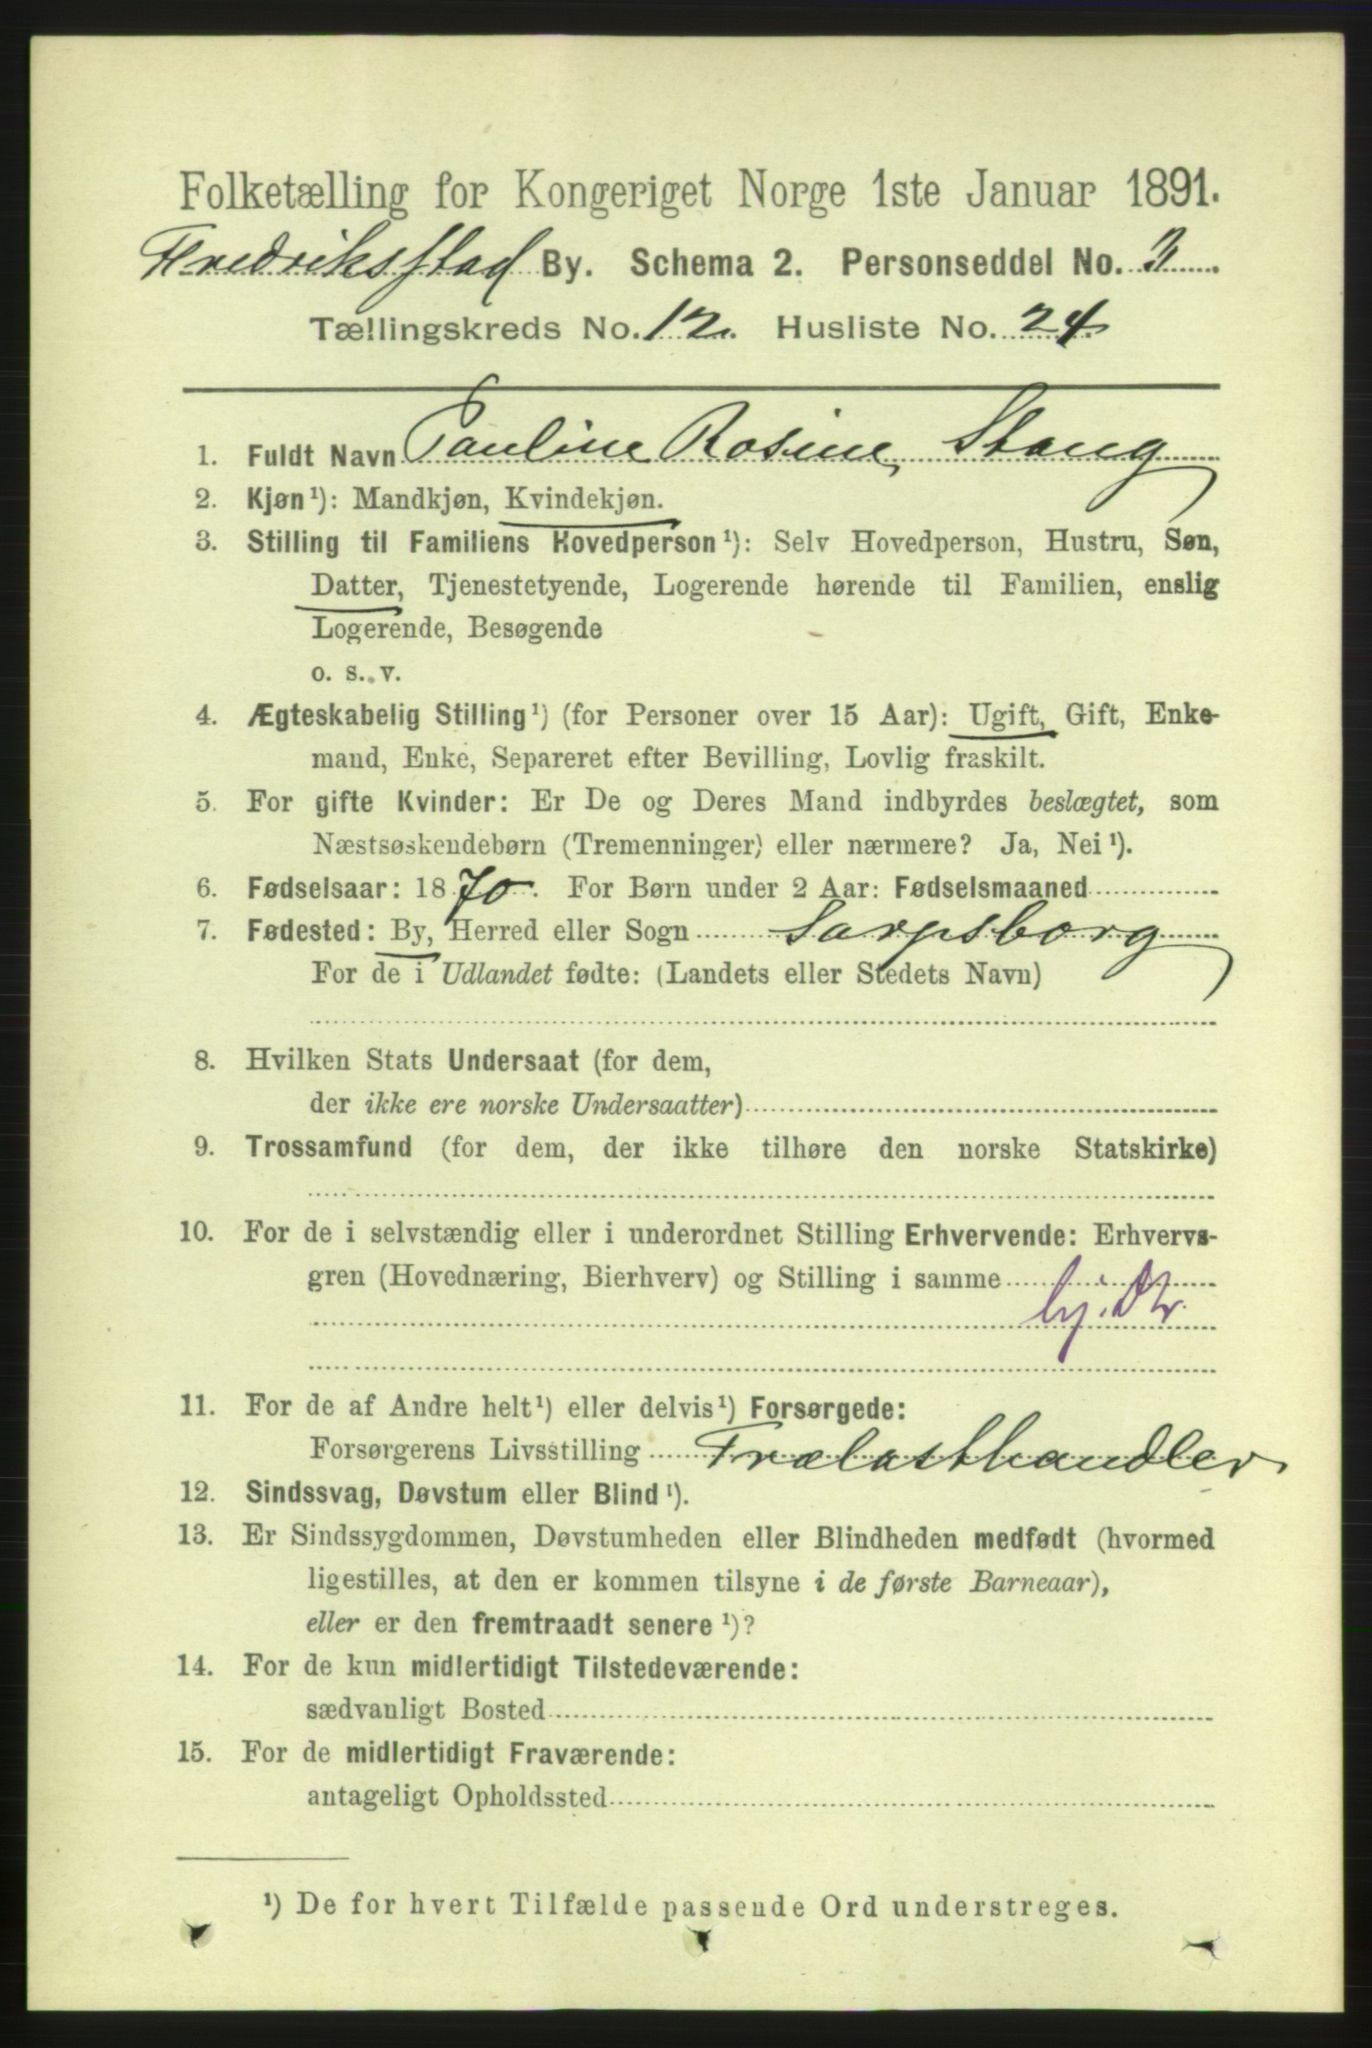 Folketælling for Kongeriget Norge 1ste Januar 1891.
Fredriksstad By. Schema 2. Personseddel No. 3
Tællingskreds No. 12. Husliste No. 24.
1. Fuldt Navn Pauline Rosine Stang
2. Kjøn¹): Mandkjøn, Kvindekjøn.
3. Stilling til Familiens Hovedperson¹): Selv Hovedperson, Hustru, Søn,
Datter, Tjenestetyende, Logerende hørende til Familien, enslig
Logerende, Besøgende
o. s. v.
4. Ægteskabelig Stilling¹) (for Personer over 15 Aar): Ugift, Gift, Enke-
mand, Enke, Separeret efter Bevilling, Lovlig fraskilt.
5. For gifte Kvinder: Er De og Deres Mand indbyrdes beslægtet, som
Næstsøskendebørn (Tremenninger) eller nærmere? Ja, Nei¹).
6. Fødselsaar: 1870. For Børn under 2 Aar: Fødselsmaaned
7. Fødested: By, Herred eller Sogn Sarpsborg
For de i Udlandet fødte: (Landets eller Stedets Navn)
8. Hvilken Stats Undersaat (for dem,
der ikke ere norske Undersaatter)
9. Trossamfund (for dem, der ikke tilhøre den norske Statskirke)
10. For de i selvstændig eller i underordnet Stilling Erhvervende: Erhvervs-
gren (Hovednæring, Bierhverv) og Stilling i samme
hj. Dtr.
11. For de af Andre helt¹) eller delvis¹) Forsørgede:
Forsørgerens Livsstilling Trælasthandler
12. Sindssvag, Døvstum eller Blind¹).
13. Er Sindssygdommen, Døvstumheden eller Blindheden medfødt (hvormed
ligestilles, at den er kommen tilsyne i de første Barneaar),
eller er den fremtraadt senere¹)?
14. For de kun midlertidigt Tilstedeværende:
sædvanligt Bosted
15. For de midlertidigt Fraværende:
antageligt Opholdssted
¹) De for hvert Tilfælde passende Ord understreges.